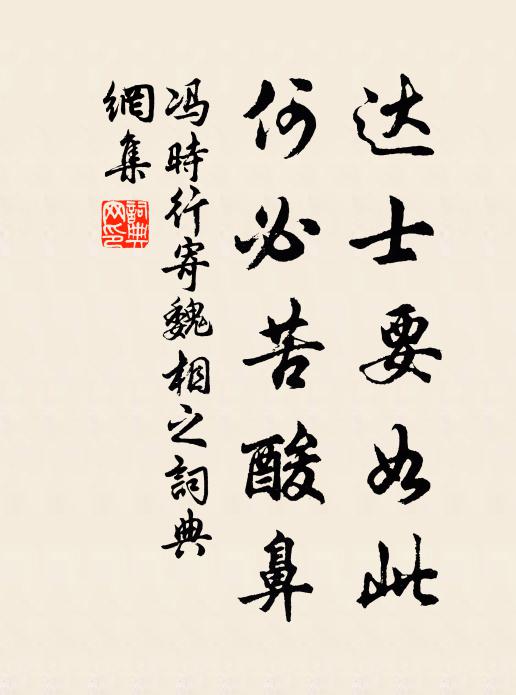 达士要如此
何必苦酸鼻
冯時行寄魏相之詞典
網集
詞典
网印